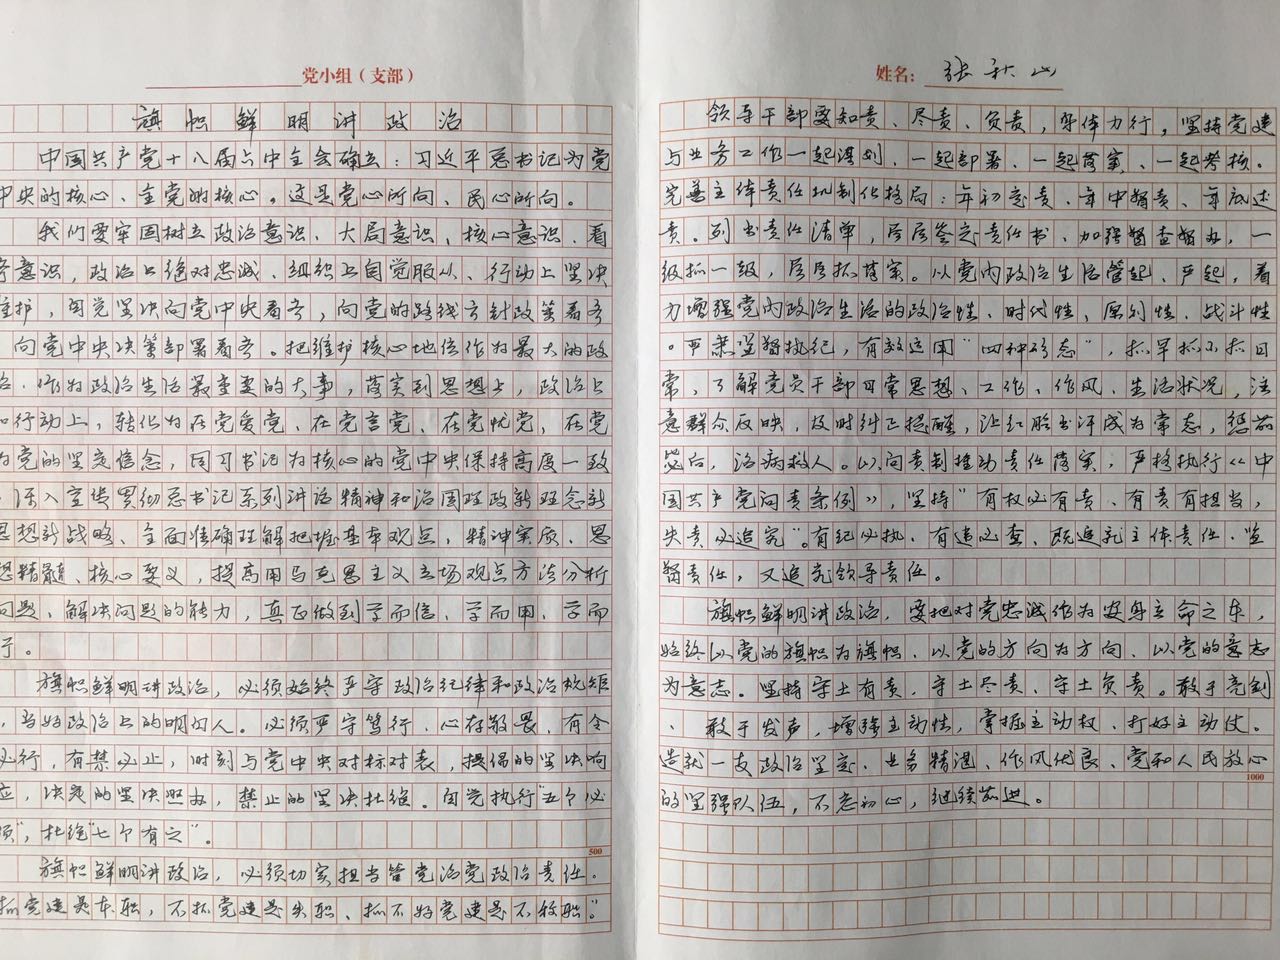 党小组（支部）
旗帜鲜明讲政治
中国共产党十八届六中全会确立：习近平总书记为党
中央的核心、全党的核心。这是党心所向、民心所向。
我们要牢固树立政治意识、大局意识、核心意识、看
齐意识，政治上绝对忠诚、组织上自觉服从、行动上坚决
维护，自觉坚决向党中央看齐，向党的路线方针政策看齐
向党中央决策部署看齐。把维护核心地位作为最大的政
治、作为政治生活最重要的大事，落实到思想上，政治上
和行动上，转化为在党爱党、在党言党、在党忧党，在党
为党的坚定信念，同习书记为核心的党中央保持高度一致
。深入学习贯彻总书记系列讲话精神和治国理政新理念新
思想新战略、全面准确理解把握基本观点，精神实质、思
想精髓、核心要义，提高用马克思主义立场观点方法分析
问题、解决问题的能力，真正做到学而信、学而用、学而
行。
旗帜鲜明讲政治，必须始终严守政治纪律和政治规矩
，当好政治上的明白人。必须严守笃行、心存敬畏、有令
必行，有禁必止，时刻与党中央对标对表，提倡的坚决响
应，决定的坚决照办，禁止的坚决杜绝。自觉执行"五个必
须"，杜绝"七个有之"。
500
旗帜鲜明讲政治，必须切实担当管党治党政治责任。
抓党建是本职，不抓党建是失职、抓不好党建是不称职。"
姓名：张秋山
领导干部要知责、尽责、负责，身体力行，坚持党建
与业务工作一起谋划、一起部署、一起落实、一起考核。
完善主体责任机制化格局：年初定责、年中督责、年底述
责。列出责任清单，层层签定责任书、加强督查督办，一
级抓一级，层层抓落实。以党内政治生活管起、严起，着
力增强党内政治生活的政治性、时代性，原则性、战斗性
。严肃监督执纪，有效运用"四种形态"，抓早抓小抓日
常，了解党员干部日常思想、工作、作风、生活状况，注
意群众反映，及时纠正提醒，让红脸出汗成为常态，惩前
毖后，治病救人。以问责制推动责任落实，严格执行《中
国共产党问责条例》，坚持"有权必有责、有责有担当，
失责必追究"。有纪必执、有违必查、既追究主体责任、监
督责任，又追究领导责任。
旗帜鲜明讲政治，要把对党忠诚作为安身立命之本，
始终以党的旗帜为旗帜、以党的方向为方向、以党的意志
为意志。坚持守土有责、守土尽责、守土负责。敢于亮剑
、敢于发声，增强主动性，掌握主动权、打好主动仗。
造就一支政治坚定、业务精湛、作风优良、党和人民放心
1000
的坚强队伍，不忘初心，继续前进。